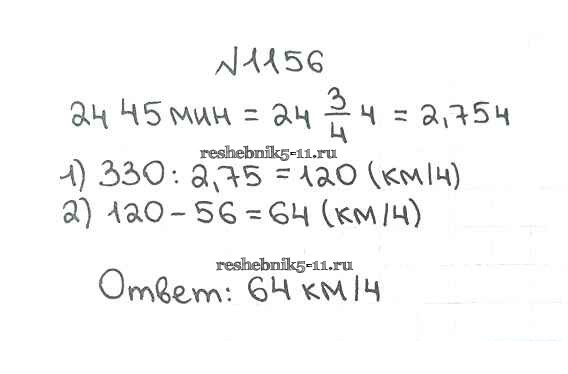 №1156
2ч 45 мин = 2ч 3/4 ч = 2,75ч
reshebnik5-11.ru
1) 330 : 2,75 = 120 (км/ч)
2) 120 - 56 = 64 (км/ч)
reshebnik5-11.ru
Ответ: 64 км/ч